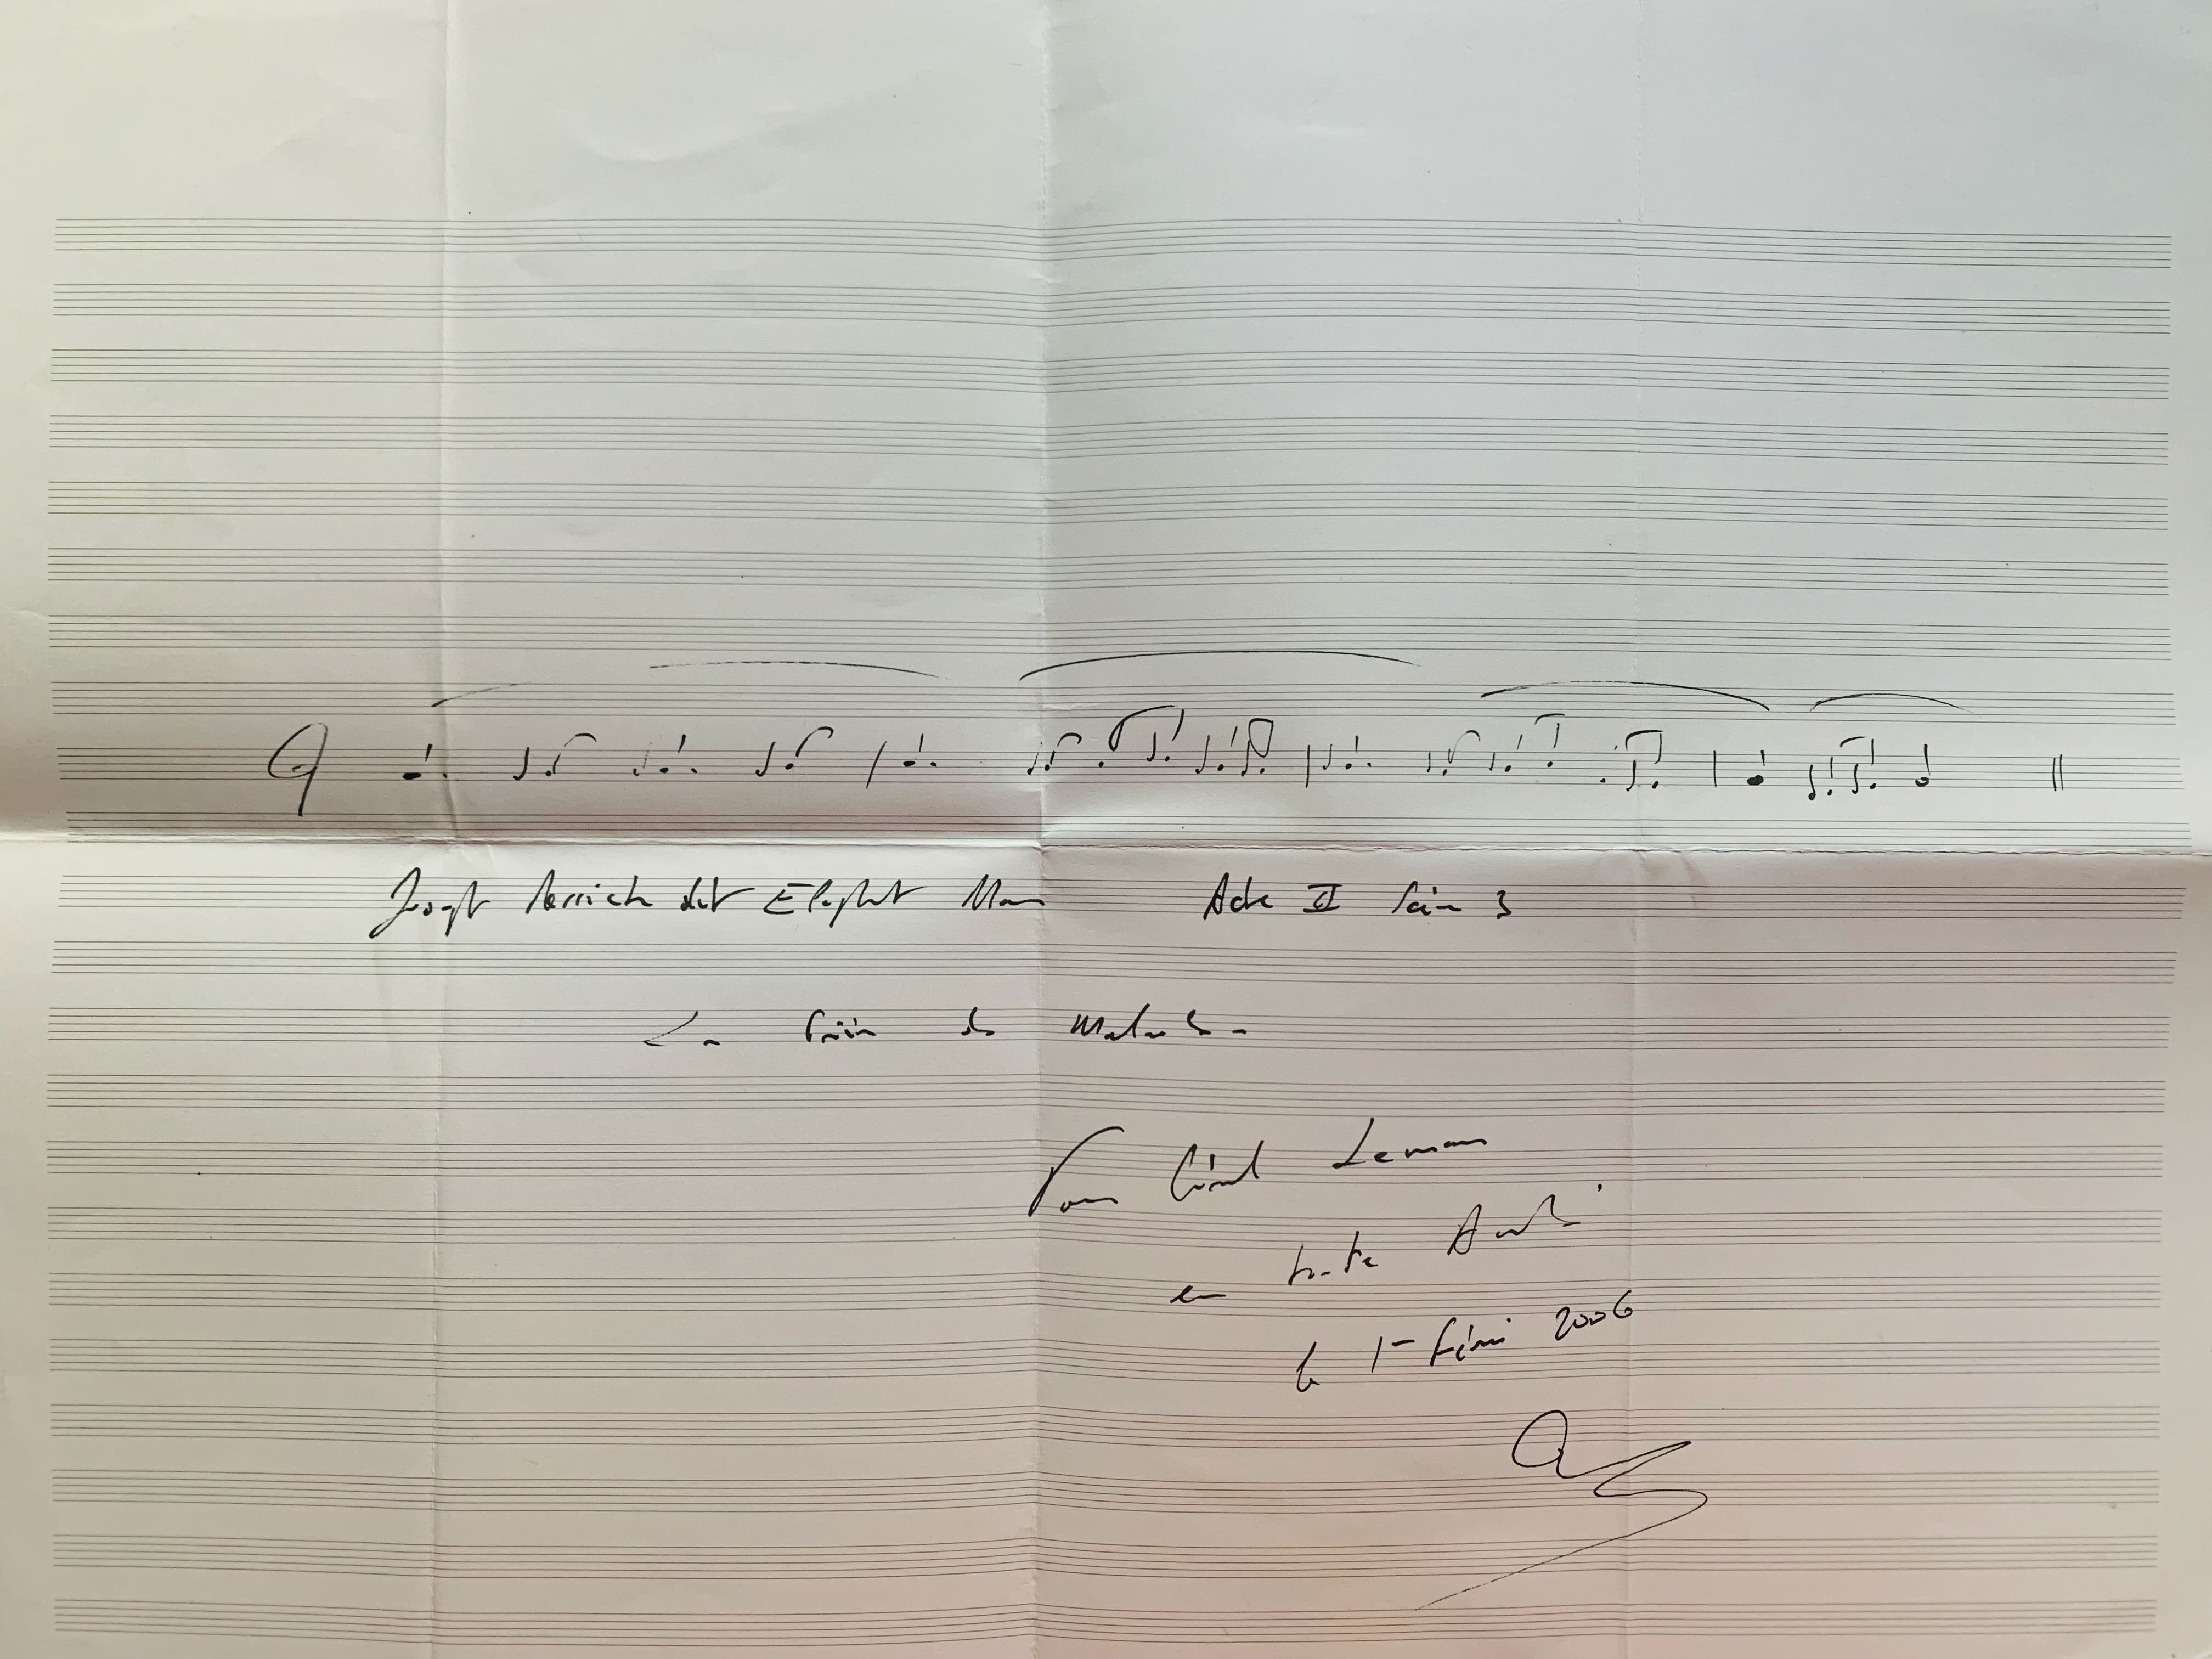 Joseph Merrick dit Elephant Man Acte II Scène 3
La Prière de
Pour Leman
en toute Amitié
le 1er février 2006